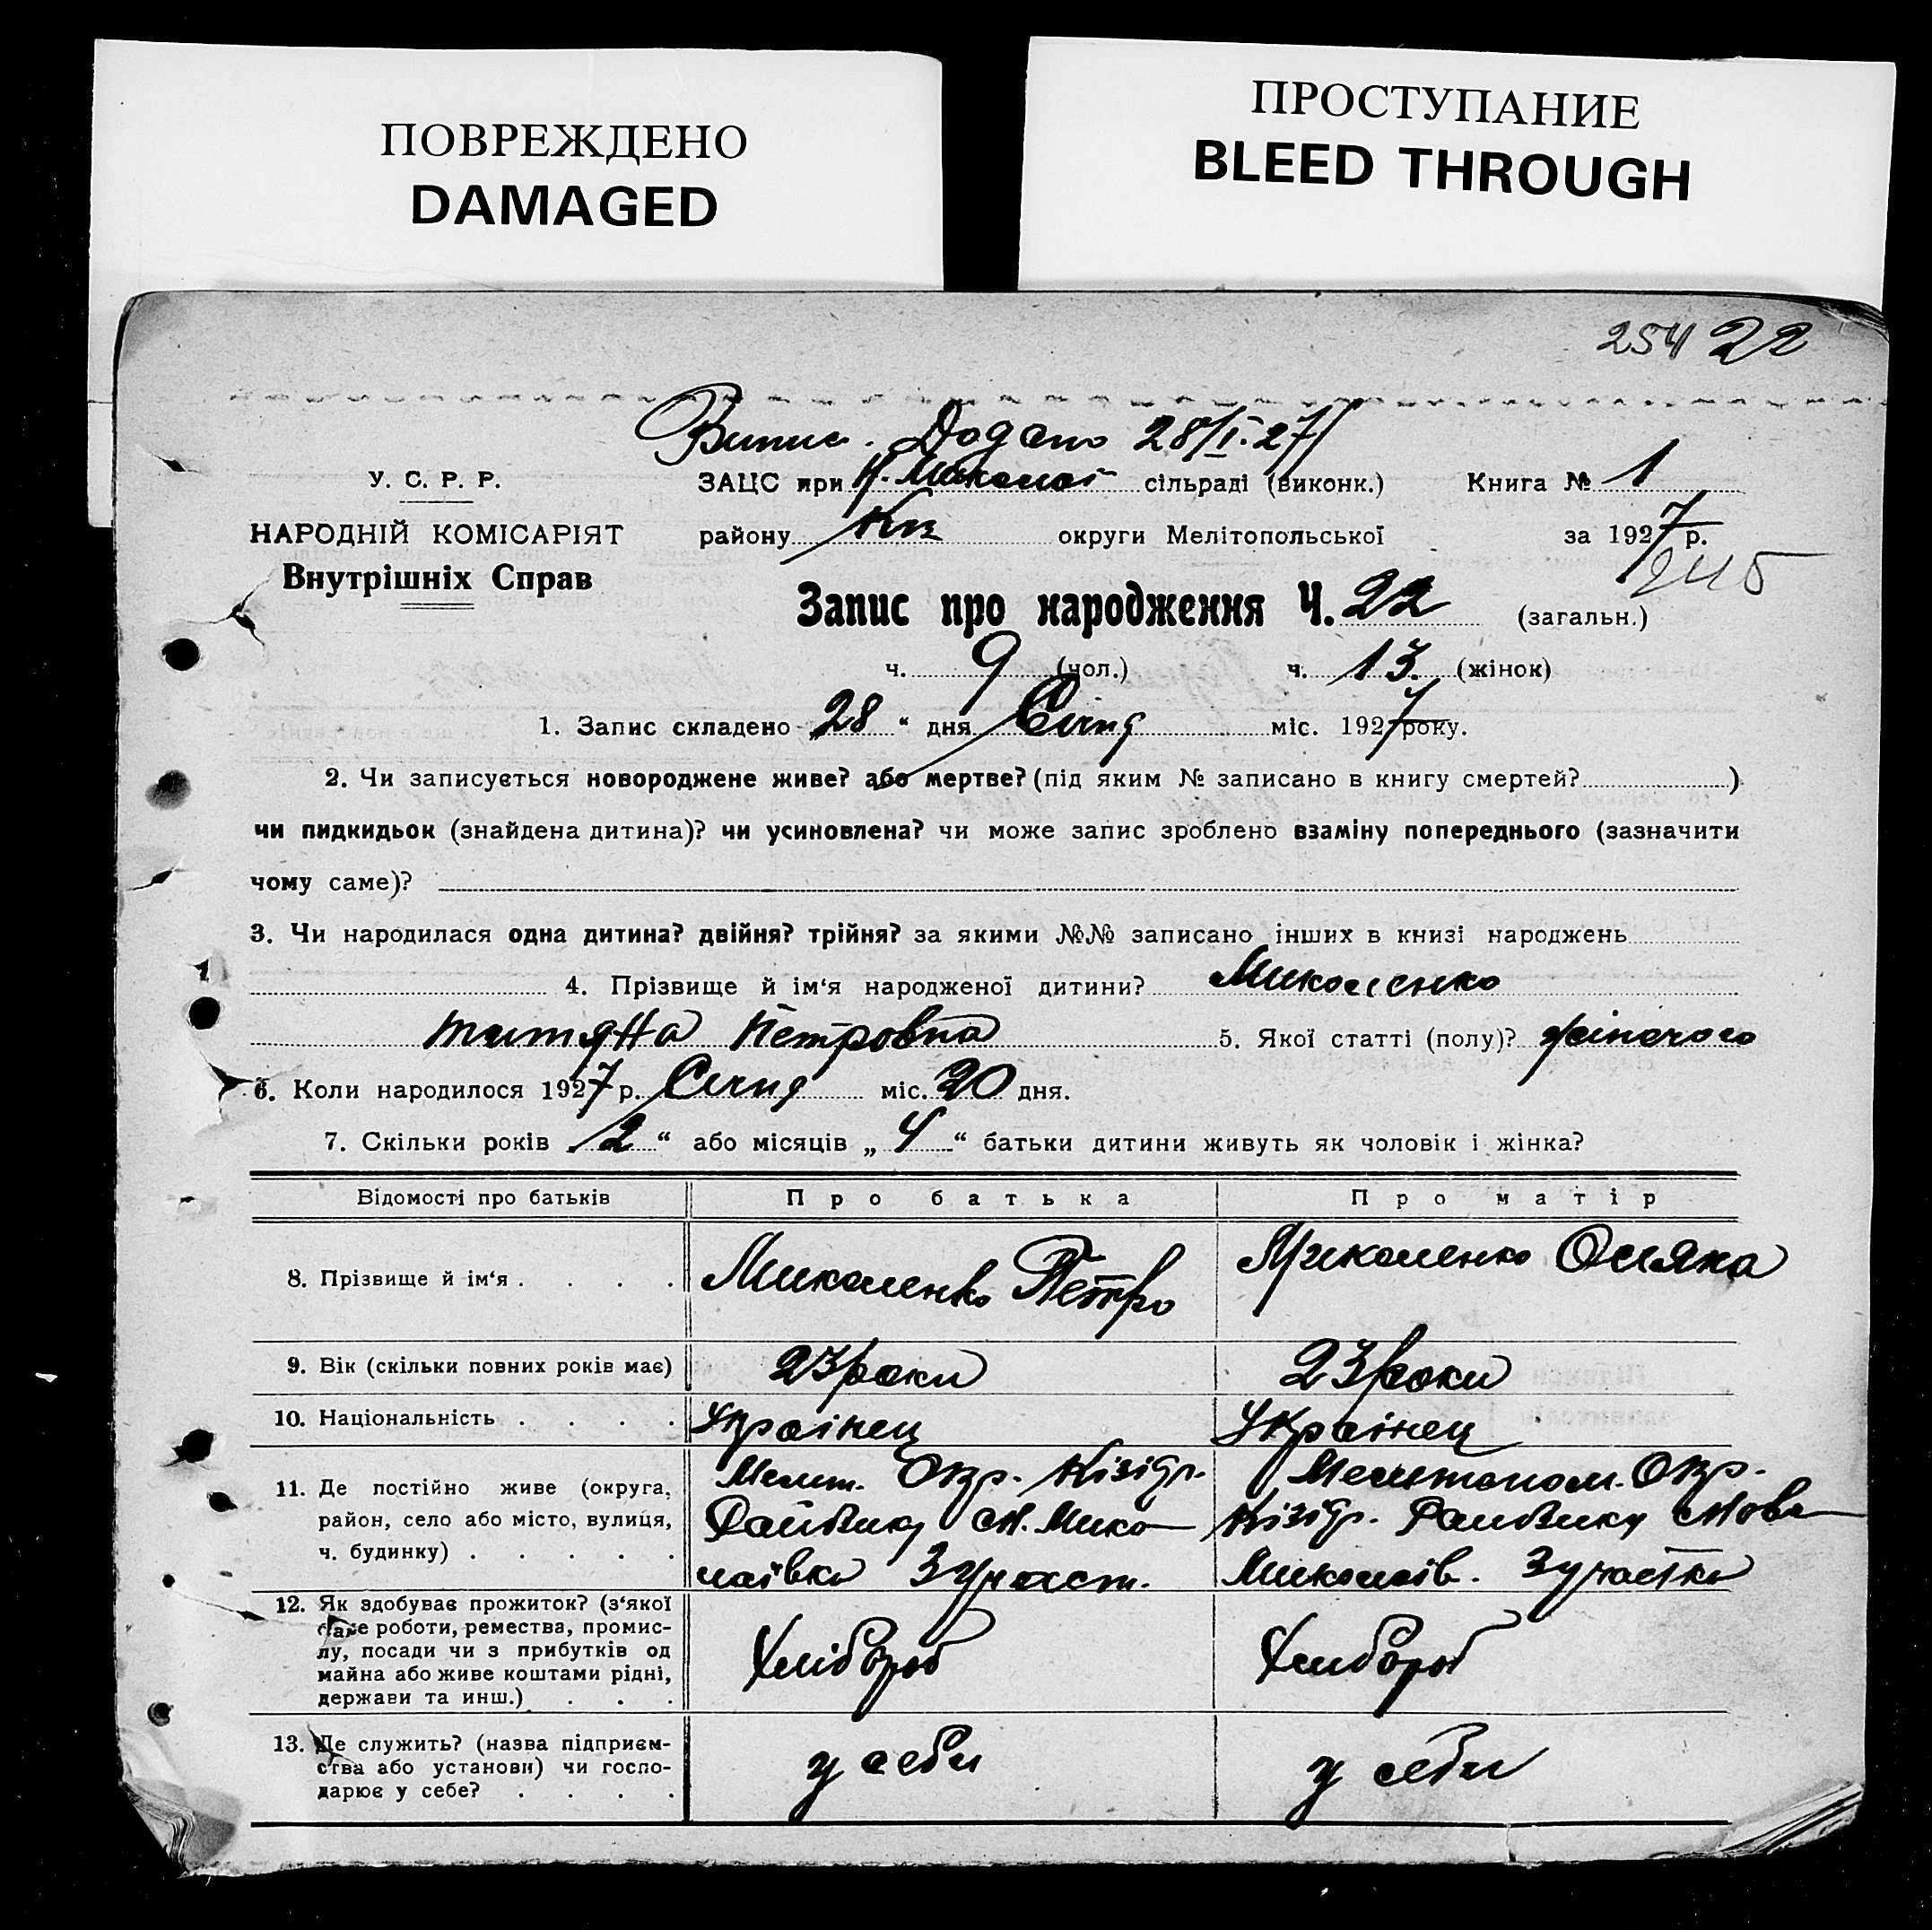 ПОВРЕЖДЕНО
DAMAGED
ПРОСТУПАНИЕ
BLEED THROUGH
254 22
Випис. Додано 28/I.27
У. С. Р. Р.
НАРОДНІЙ КОМІСАРІЯТ
Внутрішніх Справ
ЗАЦС при Н. Микола сільраді (виконк.) Книга № 1
району Кіз округи Мелітопольської за 1927 р.
245
Запис про народження Ч. 22 (загальн.)
ч. 9 (чол.) ч. 13. (жінок)
1. Запис складено „28“ дня Січня міс. 1927 року.
2. Чи записується новороджене живе? або мертве? (під яким № записано в книгу смертей? )
чи пидкидьок (знайдена дитина)? чи усиновлена? чи може запис зроблено взаміну попереднього (зазначити
чому саме)?
3. Чи народилася одна дитина? двійня? трійня? за якими №№ записано інших в книзі народжень
4. Прізвище й ім‘я народженої дитини? Миколенко
Титяна Петровна 5. Якої статті (полу)? жіночого
6. Коли народилося 1927 р. Січня міс. 20 дня.
7. Скільки років „2“ або місяців „4“ батьки дитини живуть як чоловік і жінка?
Відомості про батьків Про батька Про матір
8. Прізвище й ім‘я . . . . Миколенко Петро Миколенко Оляна
9. Вік (скільки повних років має) 23 роки 23 роки
10. Національність . . . . Українец Українец
11. Де постійно живе (округа,
район, село або місто, вулиця,
ч. будинку) . . . . .
Меліт. Окр. Кізідр.
Райвику Н. Мико-
лаівка 3 участ.
Мелитопол. Окр.
Кізідр. Раивику Нова
Миколаів. 3 участка
12. Як здобуває прожиток? (з‘якої
саме роботи, ремества, промис-
лу, посади чи з прибутків од
майна або живе коштами рідні,
держави та инш.) . . .
Хлібороб Хлибороб
13. Де служить? (назва підприєм-
ства або установи) чи госпо-
дарює у себе? . . . .
у себи у себи